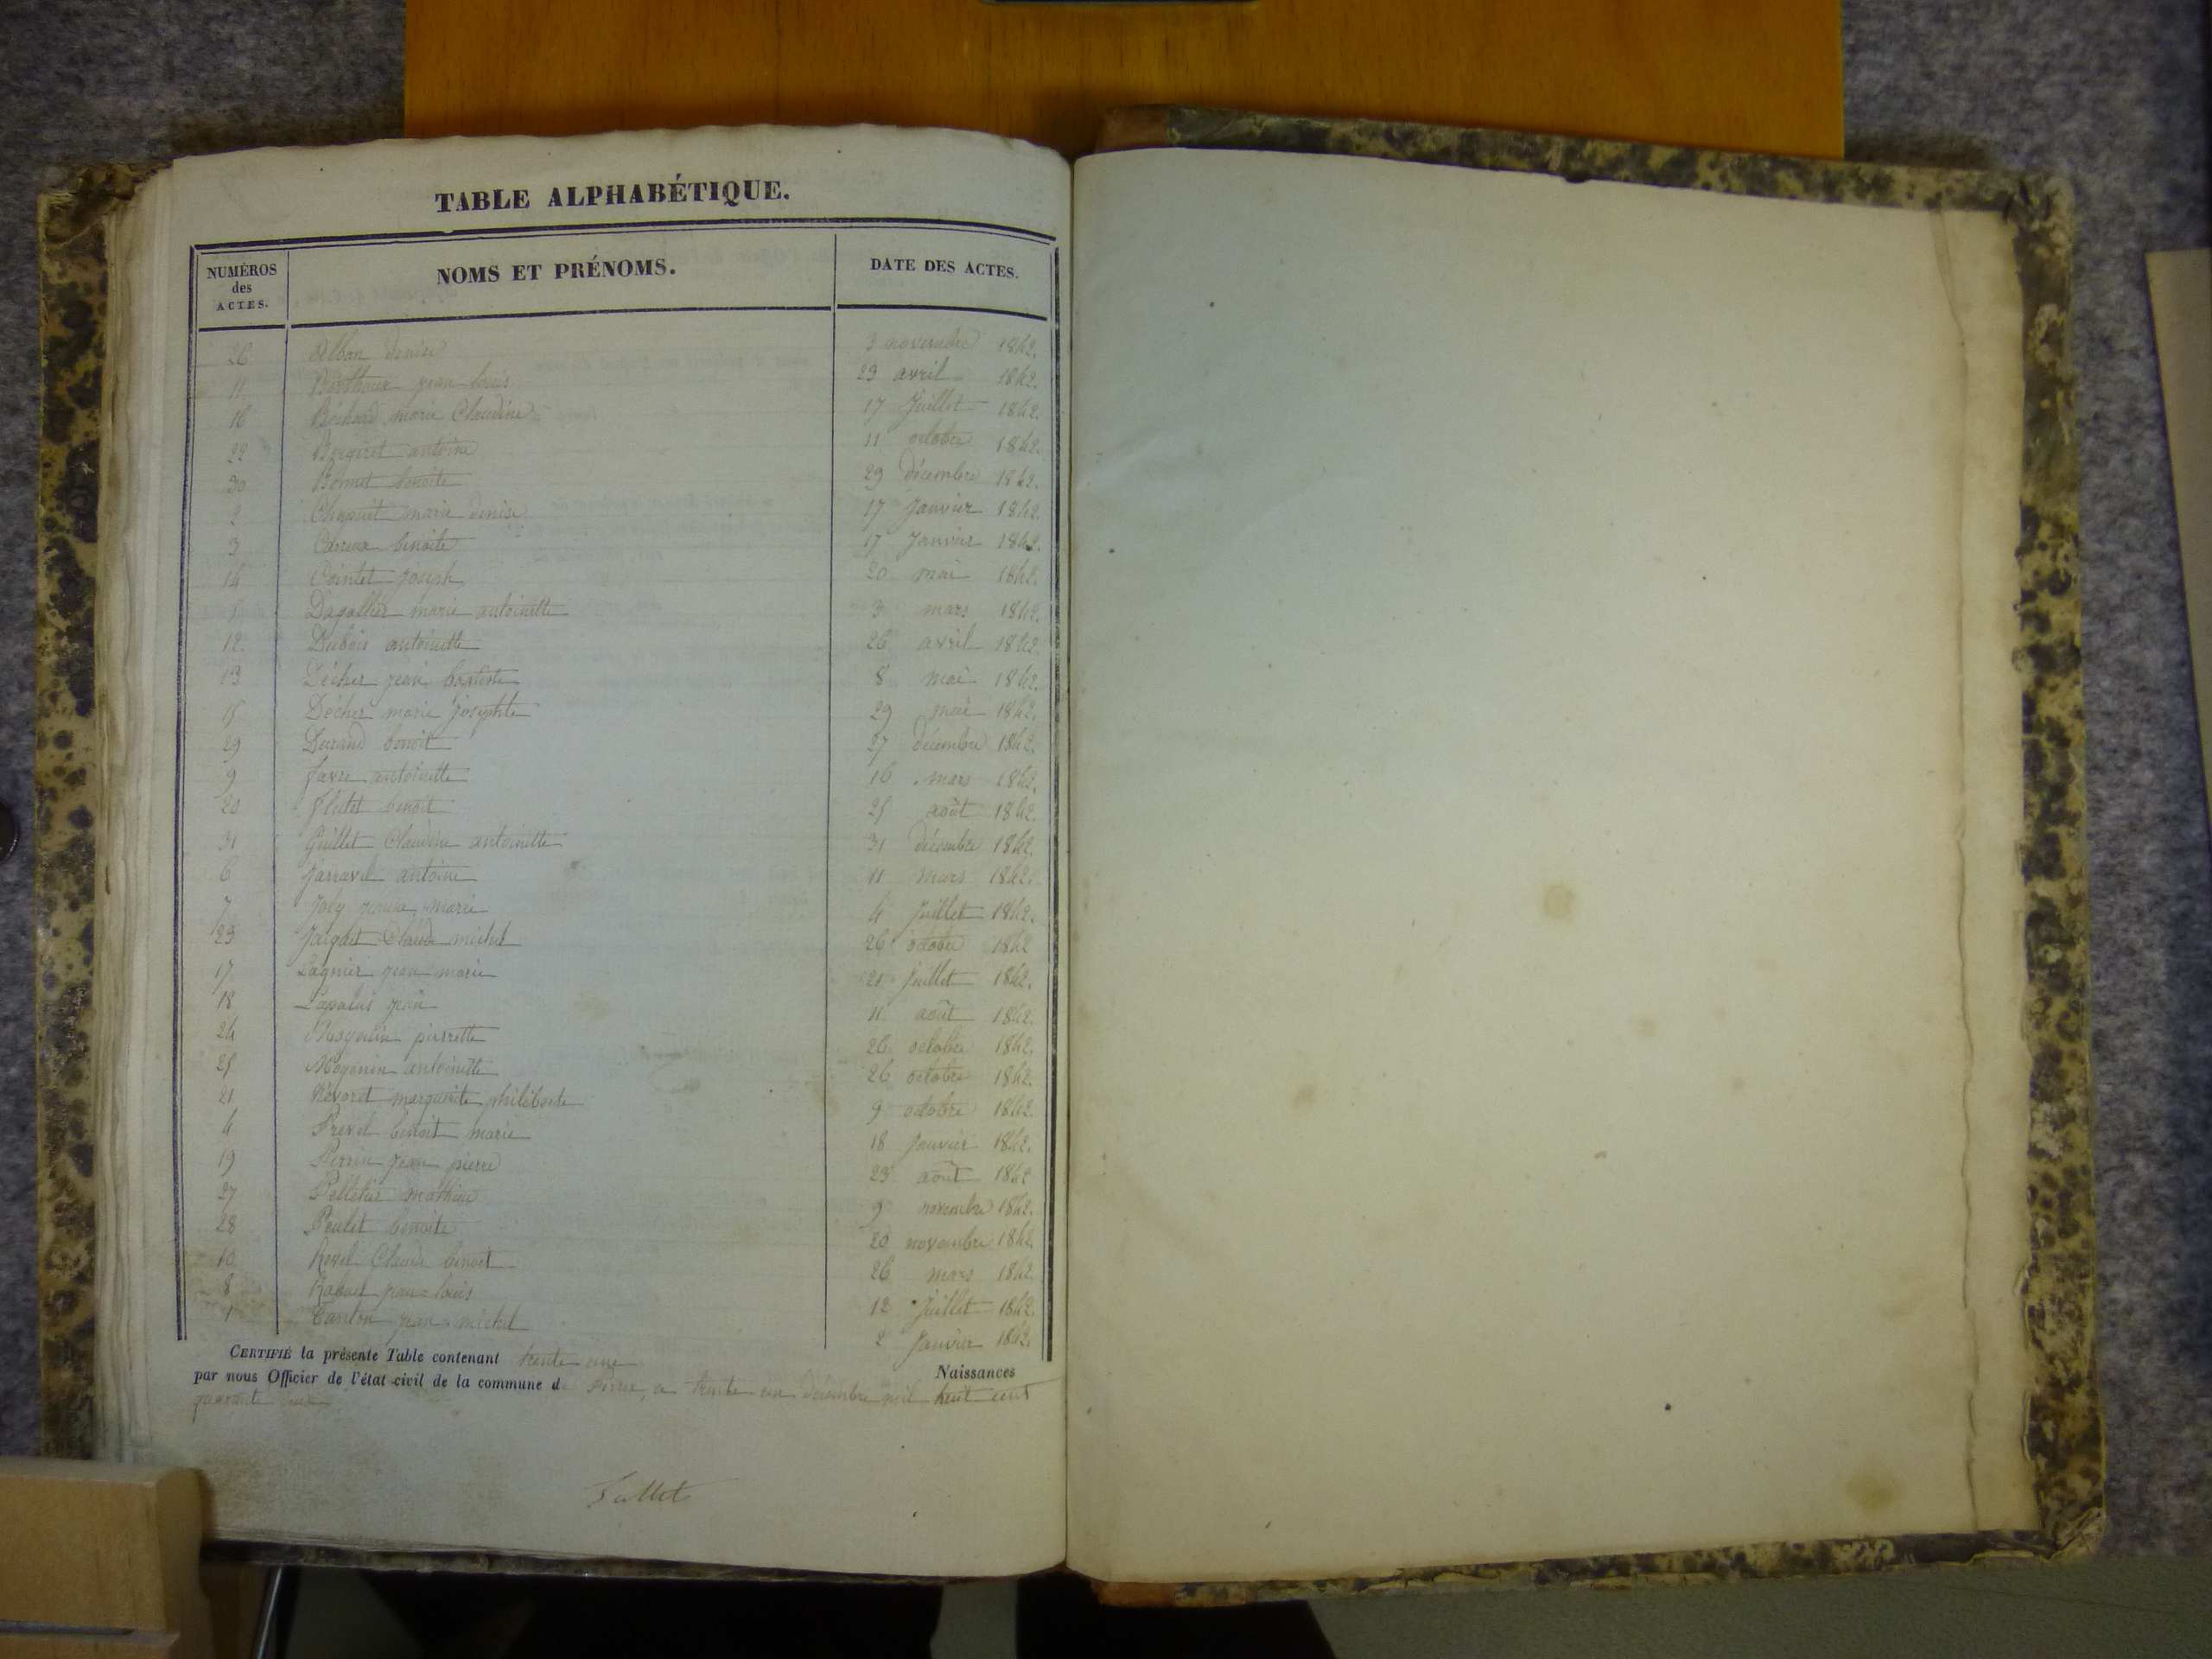 TABLE ALPHABÉTIQUE.
NUMÉROS des ACTES. NOMS ET PRÉNOMS. DATE DES ACTES.
26 Alban denise 3 novembre 1842.
11 Berthoux jean louis 23 avril 1842.
16 Bochard marie Claudine 17 Juillet 1842.
22 Bergeret antoine 11 octobre 1842.
30 Bonnet benoite 29 décembre 1842.
2 Chapuit marie denise 17 Janvier 1842.
3 benoite 17 Janvier 1842.
14 Cointet Joseph 20 mai 1842.
5 Dagallier marie antoinette 3 mars 1842.
12 Dubois antoinette 26 avril 1842.
13 Décher jean baptiste 8 mai 1842.
15 Décher marie josephte 29 mai 1842.
29 Durand benoit 27 décembre 1842.
9 favre antoinette 16 mars 1842.
20 flutet benoit 25 août 1842.
31 Guillet Claudine antoinette 31 décembre 1842.
6 Jarravel antoine 11 mars 1842.
7 Joly jeanne marie 4 Juillet 1842.
23 Claude michel 26 octobre 1842
17 Lagnier jean marie 21 Juillet 1842.
18 Lapalus jean 11 août 1842.
24 Moyenin pierrette 26 octobre 1842.
25 Moyenin antoinette 26 octobre 1842.
21 Névoret marguerite philiberte 9 octobre 1842.
4 Prevel benoit marie 18 Janvier 1842.
19 Perrin Jean pierre 23 août 1842
27 Pelletier mathieu 9 novembre 1842.
28 Poulet benoite 20 novembre 1842.
10 Revel Claude benoit 26 mars 1842.
8 Rabuel jean louis 12 Juillet 1842.
1 Tanton jean michel 2 Janvier 1842.
CERTIFIÉ la présente Table contenant trente une Naissances
par nous Officier de l'état civil de la commune d trente un décembre mil huit cent
quarante deux